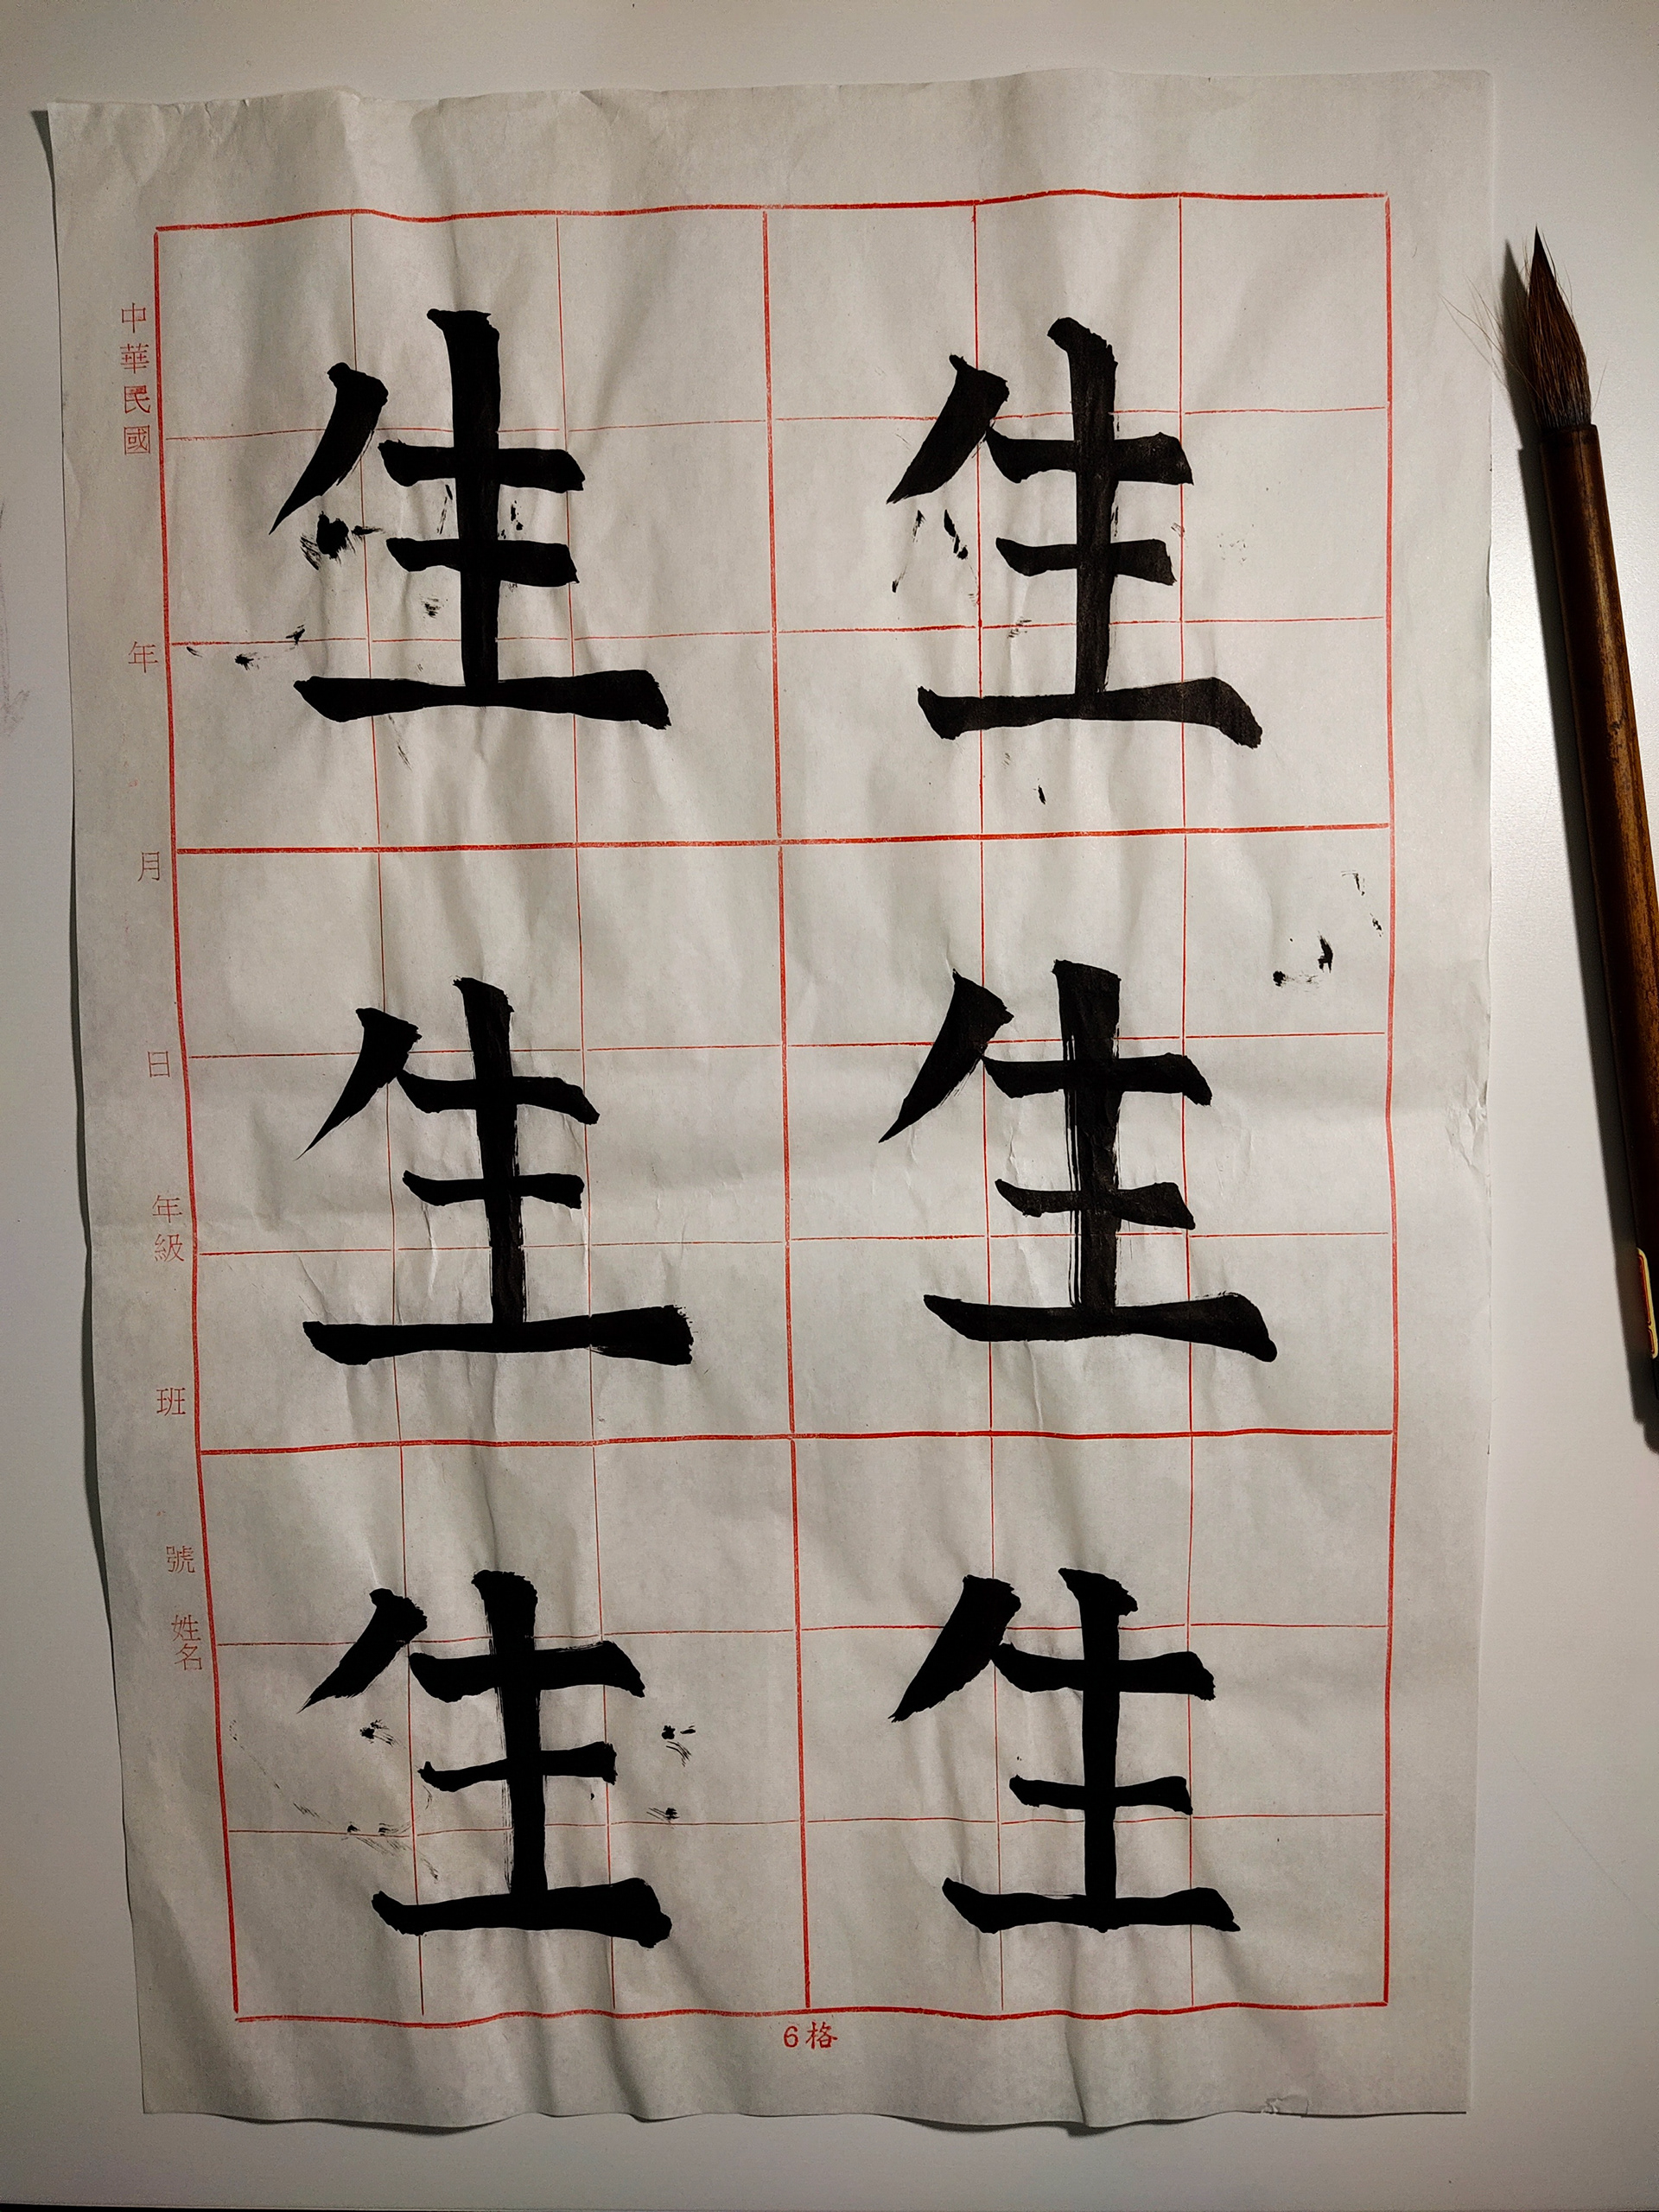 生 生
生 生
生 生
中華民國 年 月 日 年級 班 號 姓名
6格